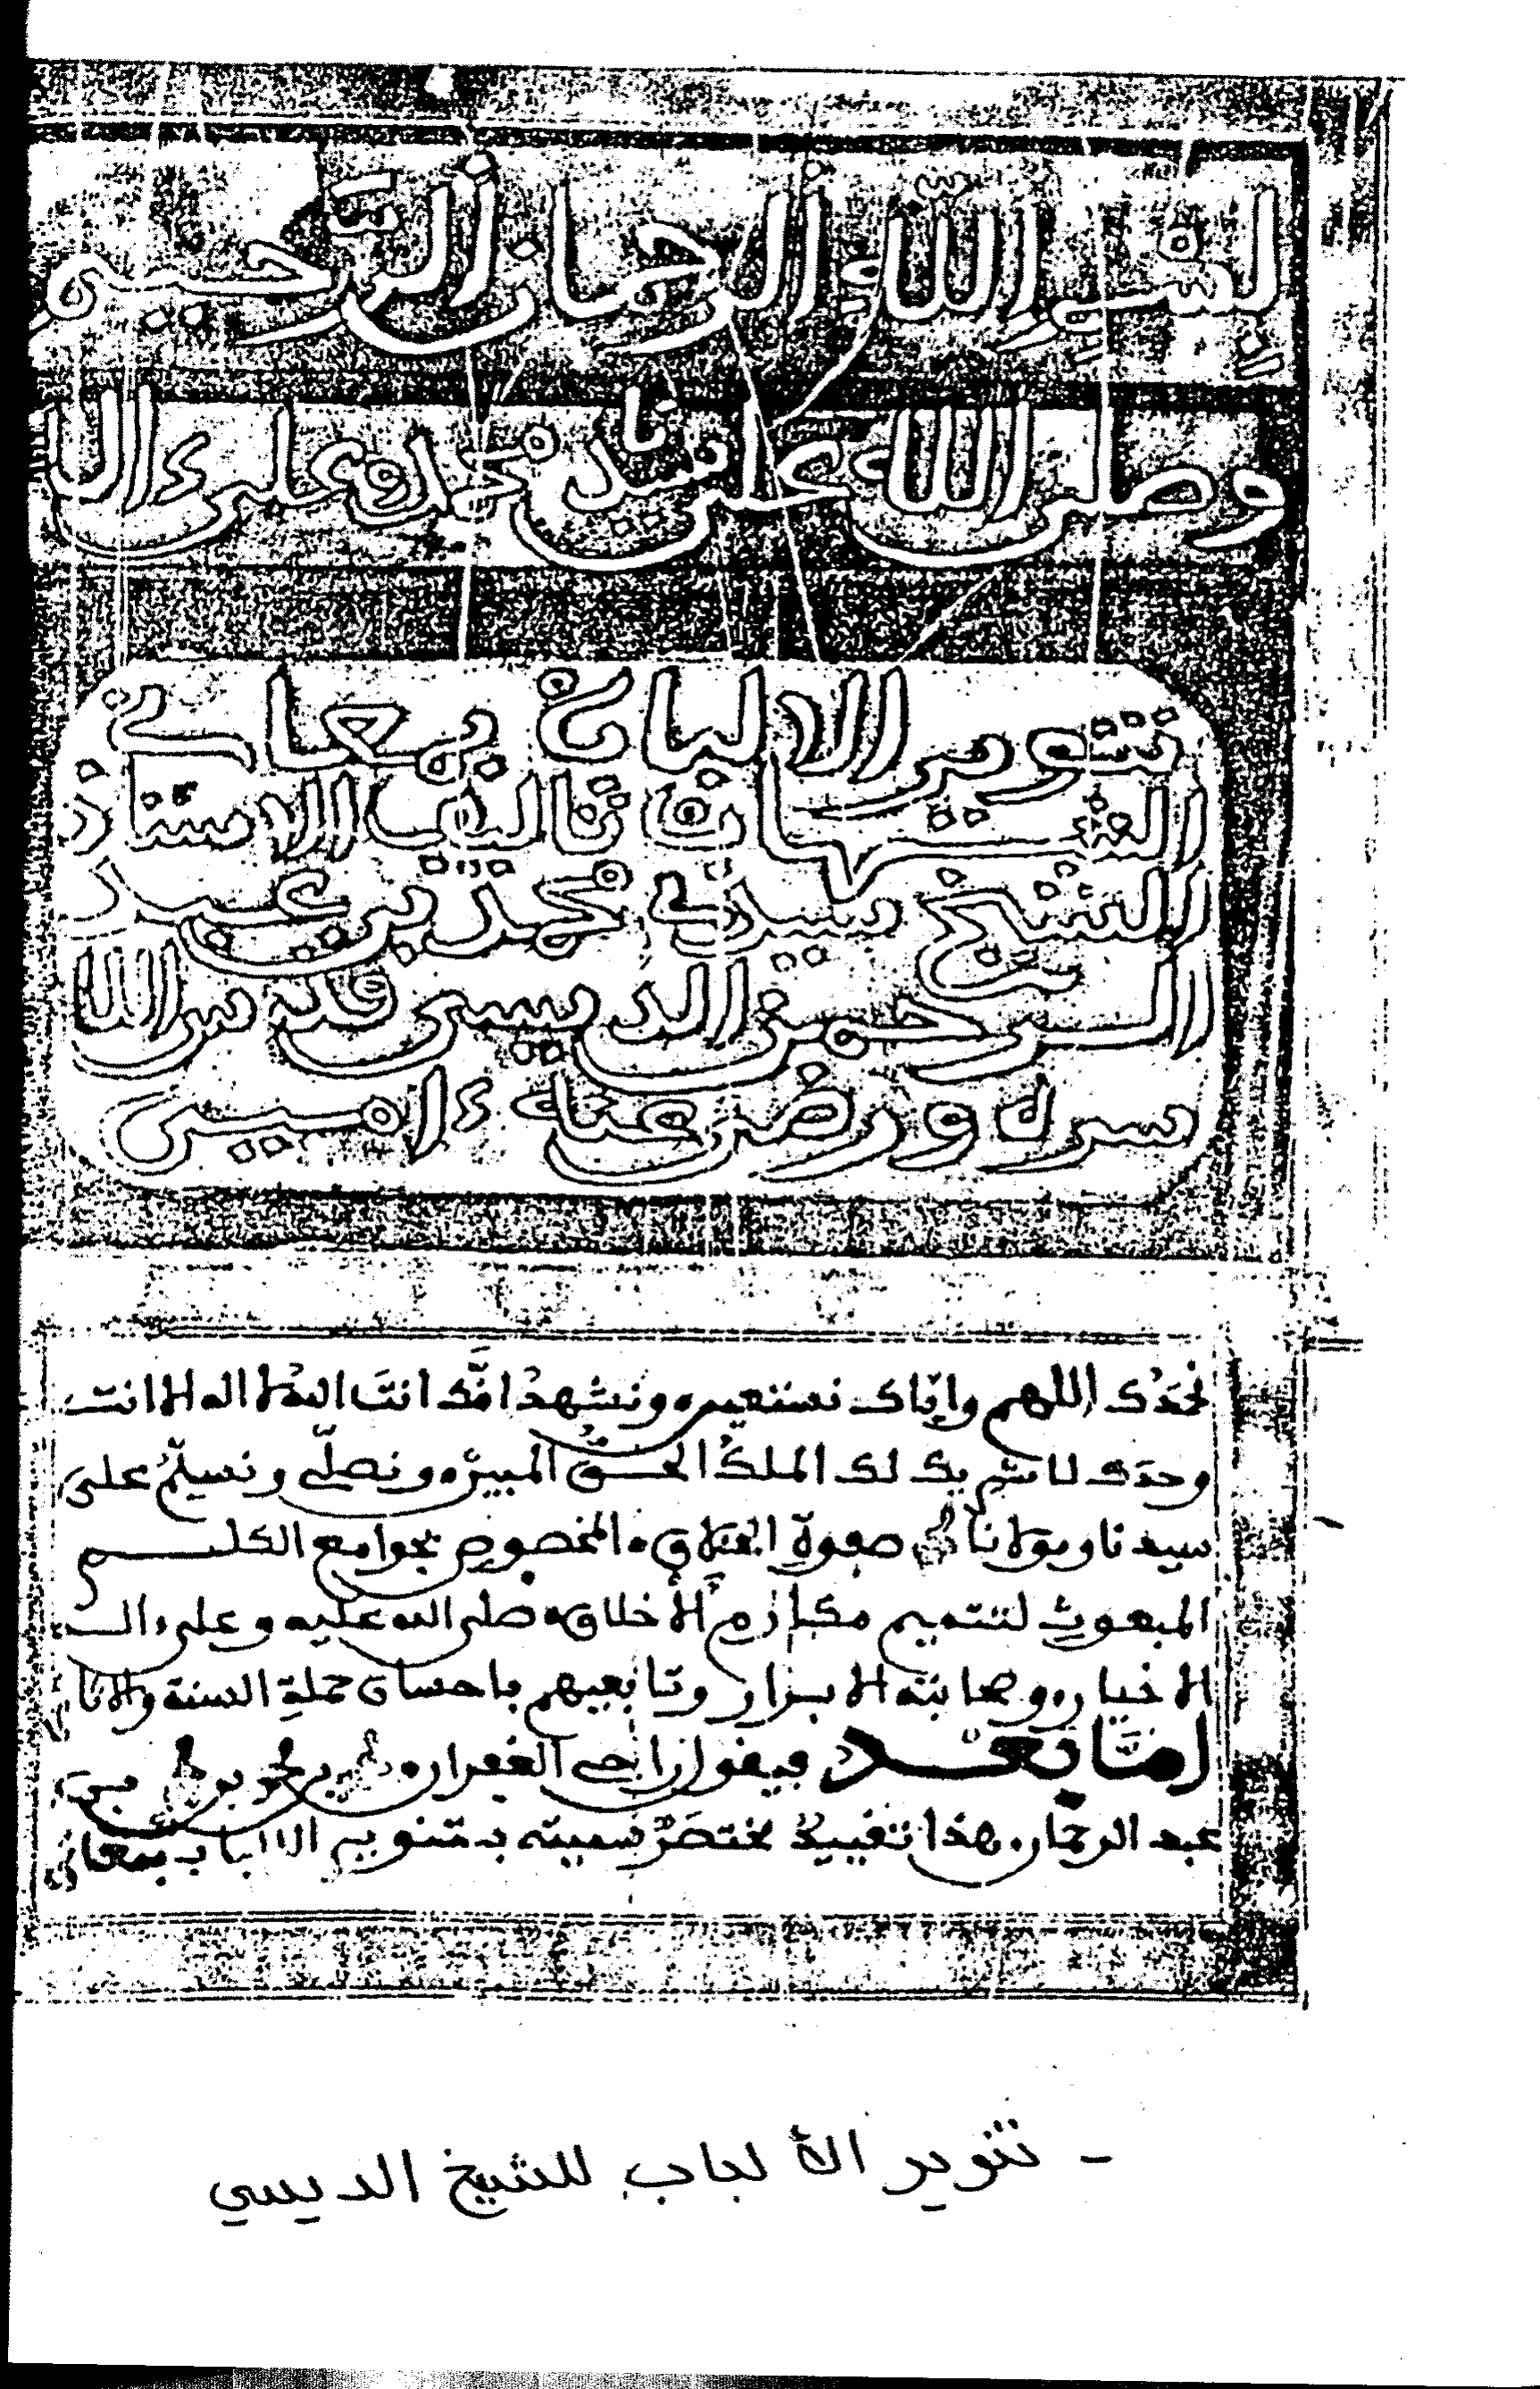 بسم الله الرحمان الرحيم
وصلى الله على سيدنا محمد وعلىءاله
تنوير الالباب بمعاني
الشهاب تاليف الاستاذ
الشيخ سيدي محمد بن عبد
الرحمن الديسي قدس الله
سره ورضي عنه ءامين
نحمدُك اللهم وإيّاك نستعين ونشهدُ انَّك انتَ اللهُ لا اله الا انت
وحدَك لا شريك لك الملكُ الحقُّ المبين ونصلّي ونسلّمُ على
سيدنا ومولانا محمد صفوةِ الخلاق المخصوص بجوامع الكلم
المبعوث لتتميم مكارم الأخلاق صلى الله عليه وعلىءاله
الاخيار وصحابته الابرار وتابعيهم باحسان حملةِ السنة والاثار
امَّا بَعْد فيقول راجى الغفران محمد بن محمد بن
عبد الرحمان هذا تقييدٌ مختصَرٌ سميته بـتنوير الالباب بمعاني
- تنوير الألباب للشيخ الديسي